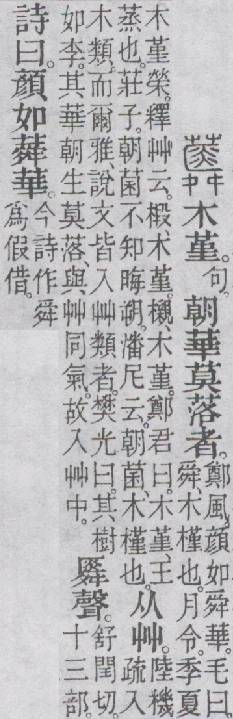 木堇。句。朝華莫落者。鄭風。顏如舜華。毛曰。
舜、木槿也。月令。季夏
木堇榮。釋艸云。椵、木堇。櫬、木堇。鄭君曰。木堇、王
蒸也。莊子。朝菌不知晦朔。潘尼云。朝菌、木槿也。
从艸。陸機
疏入
木類。而爾雅說文皆入艸類者。樊光曰。其樹
如李。其華朝生莫落。與艸同氣。故入艸中。
䑞聲。舒閏切。
十三部。
詩曰。顏如蕣華。今詩作舜
爲假借。